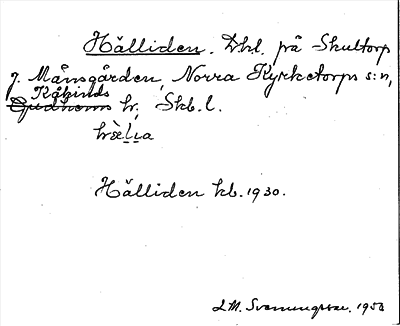 Hälliden. Dhl. på Skultorp
g. Månsgården, Norra Kyrketorps s:n,
Kåkinds
Gudhems hr. Skb. l.
Hälliden kb. 1930.
L M. Svanungsson. 1950